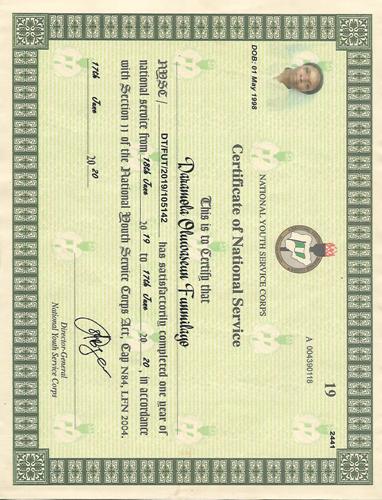 19
2441
A 004390118
NATIONAL YOUTH SERVICE CORPS
DOB: 01 May 1998
Certificate of National Service
This is to Certify that
Daramola Oluwaseun Funmilayo
NYSC/ DT/FUT/2019/105142 has satisfactorily completed one year of
national service from 18th June 20 19 to 17th June 20 20, in accordance
with Section 11 of the National Youth Service Corps Act, Cap N84, LFN 2004.
17th June 20 20
Director-General
National Youth Service Corps